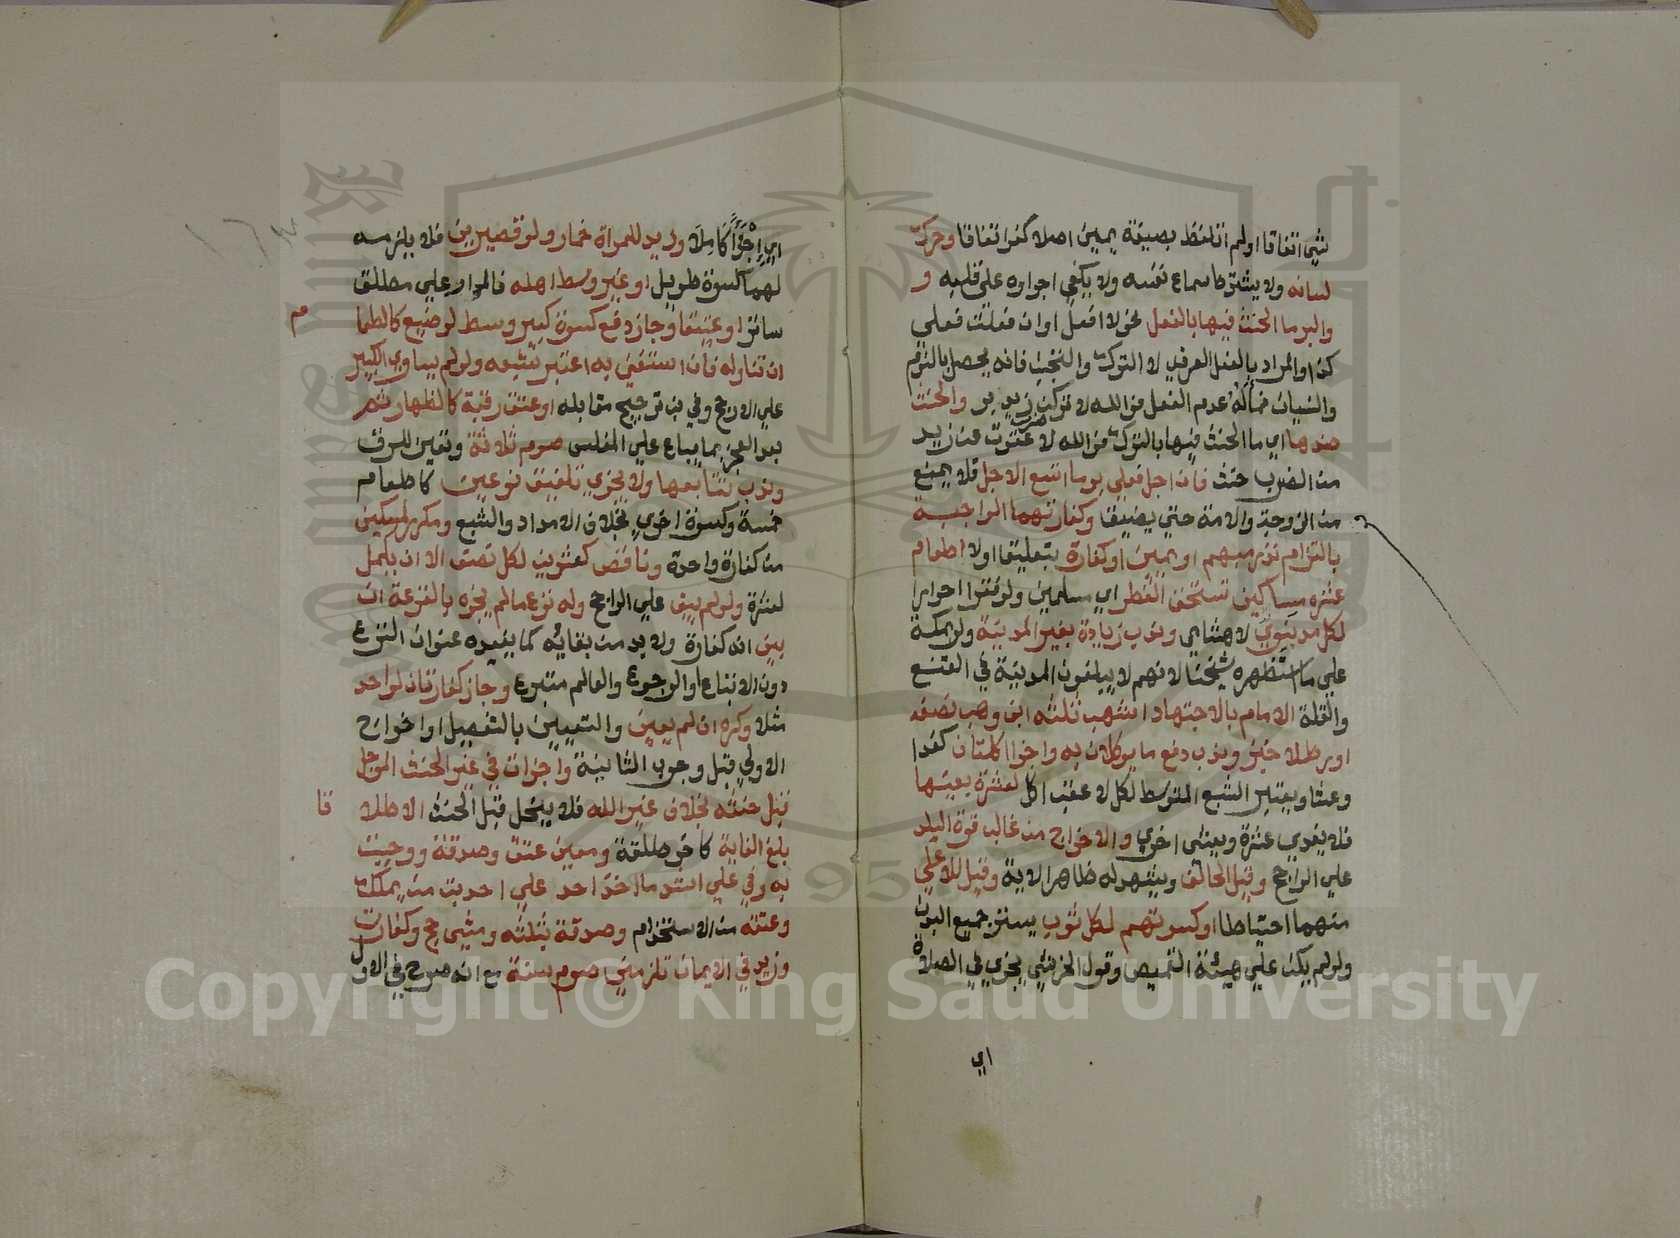 شي اتفاقا او لم اتلفظ بصيغة يمين اصلا كفر اتفاقا وحرك
لسانه ولا يشترط اسماع نفسه ولا يكفي اجراوه على قلبه و
والبر ما الحنث فيها بالفعل نحو لا افعل او ان فعلت فعلي
كذا والمراد بالفعل العرفي لا الترك والتجنب فانه يحصل بالنوم
والنسيان عدم الفعل فوالله لا تركن زيد بر والحنث
ضدها اي ما الحنث فيها بالترك فوالله لا عن زيد
من الضرب حنث فان اجل فعلي بر ما اتسع الاجل فلا يمنع
من الزوجة والامة حتى يضيق وكفارتهما الواجبة
بالتزام نذر مبهم او يمين او كفارة بتعليق اولا اطعام
عشره مساكين تستحق الفطر اي مسلمين ولو فقرا احرارا
لكل مد نبوي لا هشامي وندب زيادة بغير المدينة ولو بمكة
على ما استظهره شيخنا لانهم لا يبلغون المدينة في القنع
والقلة الامام بالاجتهاد اشهب ثلثه ابن وهب نصفه
او رطلا خبز وندب دفع ما يوكلان به واجزا اكلتان كغدا
وعشا ويعتبر الشبع المتوسط لكل لا عقب اكل لعشرة بعينها
فلا يغدي عشرة ويعشى اخري والاخراج من غالب قوة البلد
على الراجح وقيل الحالف ويشهد له ظاهر الاية وقيل للاعلي
منهما احتياطا او كسوتهم لكل ثوب يستر جميع البدن
ولو لم يكن على هيئة القميص وقول الخرشي يجزي في الصلاة
اي
اي اجزاءً كاملا وزيد للمراة خمار ولو قصيرين فلا يلزمه
لهما كسوة طويل او غير وسط اهله فالمراد على مطلق
ساتر او عتيقا وجاز دفع كسوة كبير وسط لرضيع كالطعام
ان تناوله فان استغنى به اعتبر شبعه ولو لم يساوي الكبير
على الارجح وفي بن ترجيح مقابله او عتق رقبة كالظهار ثم
بعد العجز بما يباع على المفلس صوم ثلاثة وتعين للرق
وندب تتابعها ولا يجزي تلفيق نوعين كاطعام
خمسة وكسوة اخري بخلاف الامداد والشبع ومكرر لمسكين
من كفارة واحدة وناقص كعشرين لكل نصف الا ان يكمل
لعشرة ولو لم يبق على الراجح وله نزع ما لم يجزه بالقرعة ان
بين انه كفارة ولا بد من بقائه كما يفيده عنوان النزع
دون الاتباع او الرجوع والعالم متبرع وجاز كفارتان لواحد
مثلا وكره ان لم يعين والتعيين بالتفصيل او اخراج
الاولي قبل وجوب الثانية واجزات في غير الحنث الموجل
قبل حنثه بخلاف غير الله فلا ينحل قبل الحنث الا طلاقا
بلغ الغاية كاخر طلقة ومعين عتق وصدقة ووجبت
به وفي علي اشد ما اخذ احد على احد بت من يملك
وعتقه من الاستخدام وصدقة بثلثه ومشي حج وكفارة
وزيد في الايمان تلزمني صوم سنة مع انه صرح في الاول